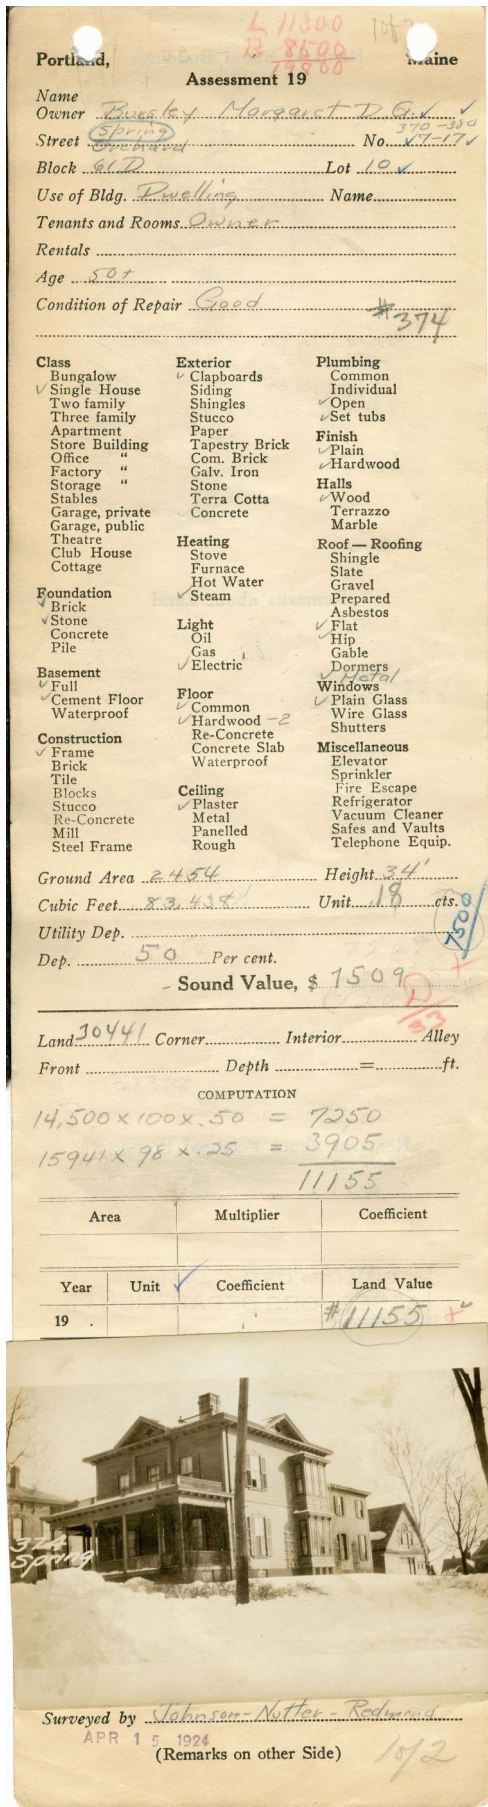 L 11300
B 8500
19800
1 of 2
Portland, Maine
Assessment 19
Name
Owner Bursley Margaret D. G. ✓ ✓
Spring 370-380
Street Orchard No. ✓7-17✓
Block 61D Lot 10 ✓
Use of Bldg. Dwelling Name
Tenants and Rooms Owner
Rentals
Age 50+
Condition of Repair Good
#374
Class
Bungalow
✓ Single House
Two family
Three family
Apartment
Store Building
Office "
Factory "
Storage "
Stables
Garage, private
Garage, public
Theatre
Club House
Cottage
Foundation
✓ Brick
✓ Stone
Concrete
Pile
Basement
✓ Full
✓ Cement Floor
Waterproof
Construction
✓ Frame
Brick
Tile
Blocks
Stucco
Re-Concrete
Mill
Steel Frame
Exterior
✓ Clapboards
Siding
Shingles
Stucco
Paper
Tapestry Brick
Com. Brick
Galv. Iron
Stone
Terra Cotta
Concrete
Heating
Stove
Furnace
Hot Water
✓ Steam
Light
Oil
Gas
✓ Electric
Floor
✓ Common
✓ Hardwood -2
Re-Concrete
Concrete Slab
Waterproof
Ceiling
✓ Plaster
Metal
Panelled
Rough
Plumbing
Common
Individual
✓ Open
✓ Set tubs
Finish
✓ Plain
✓ Hardwood
Halls
✓ Wood
Terrazzo
Marble
Roof — Roofing
Shingle
Slate
Gravel
Prepared
Asbestos
✓ Flat
✓ Hip
Gable
Dormers
✓ Metal
Windows
✓ Plain Glass
Wire Glass
Shutters
Miscellaneous
Elevator
Sprinkler
Fire Escape
Refrigerator
Vacuum Cleaner
Safes and Vaults
Telephone Equip.
Ground Area 2454 Height 34'
Cubic Feet 83,438 Unit 18 cts.
7500
Utility Dep.
Dep. 50 Per cent.
Sound Value, $ 7509
Land 30441 Corner Interior Alley
Front Depth = ft.
COMPUTATION
14,500 x 100 x .50 = 7250
15941 x 98 x .25 = 3905
11155
Area Multiplier Coefficient
Year Unit ✓ Coefficient Land Value
19 . #11155
374
Spring
Surveyed by Johnson-Nutter-Redmond
APR 15 1924
(Remarks on other Side)
1 of 2